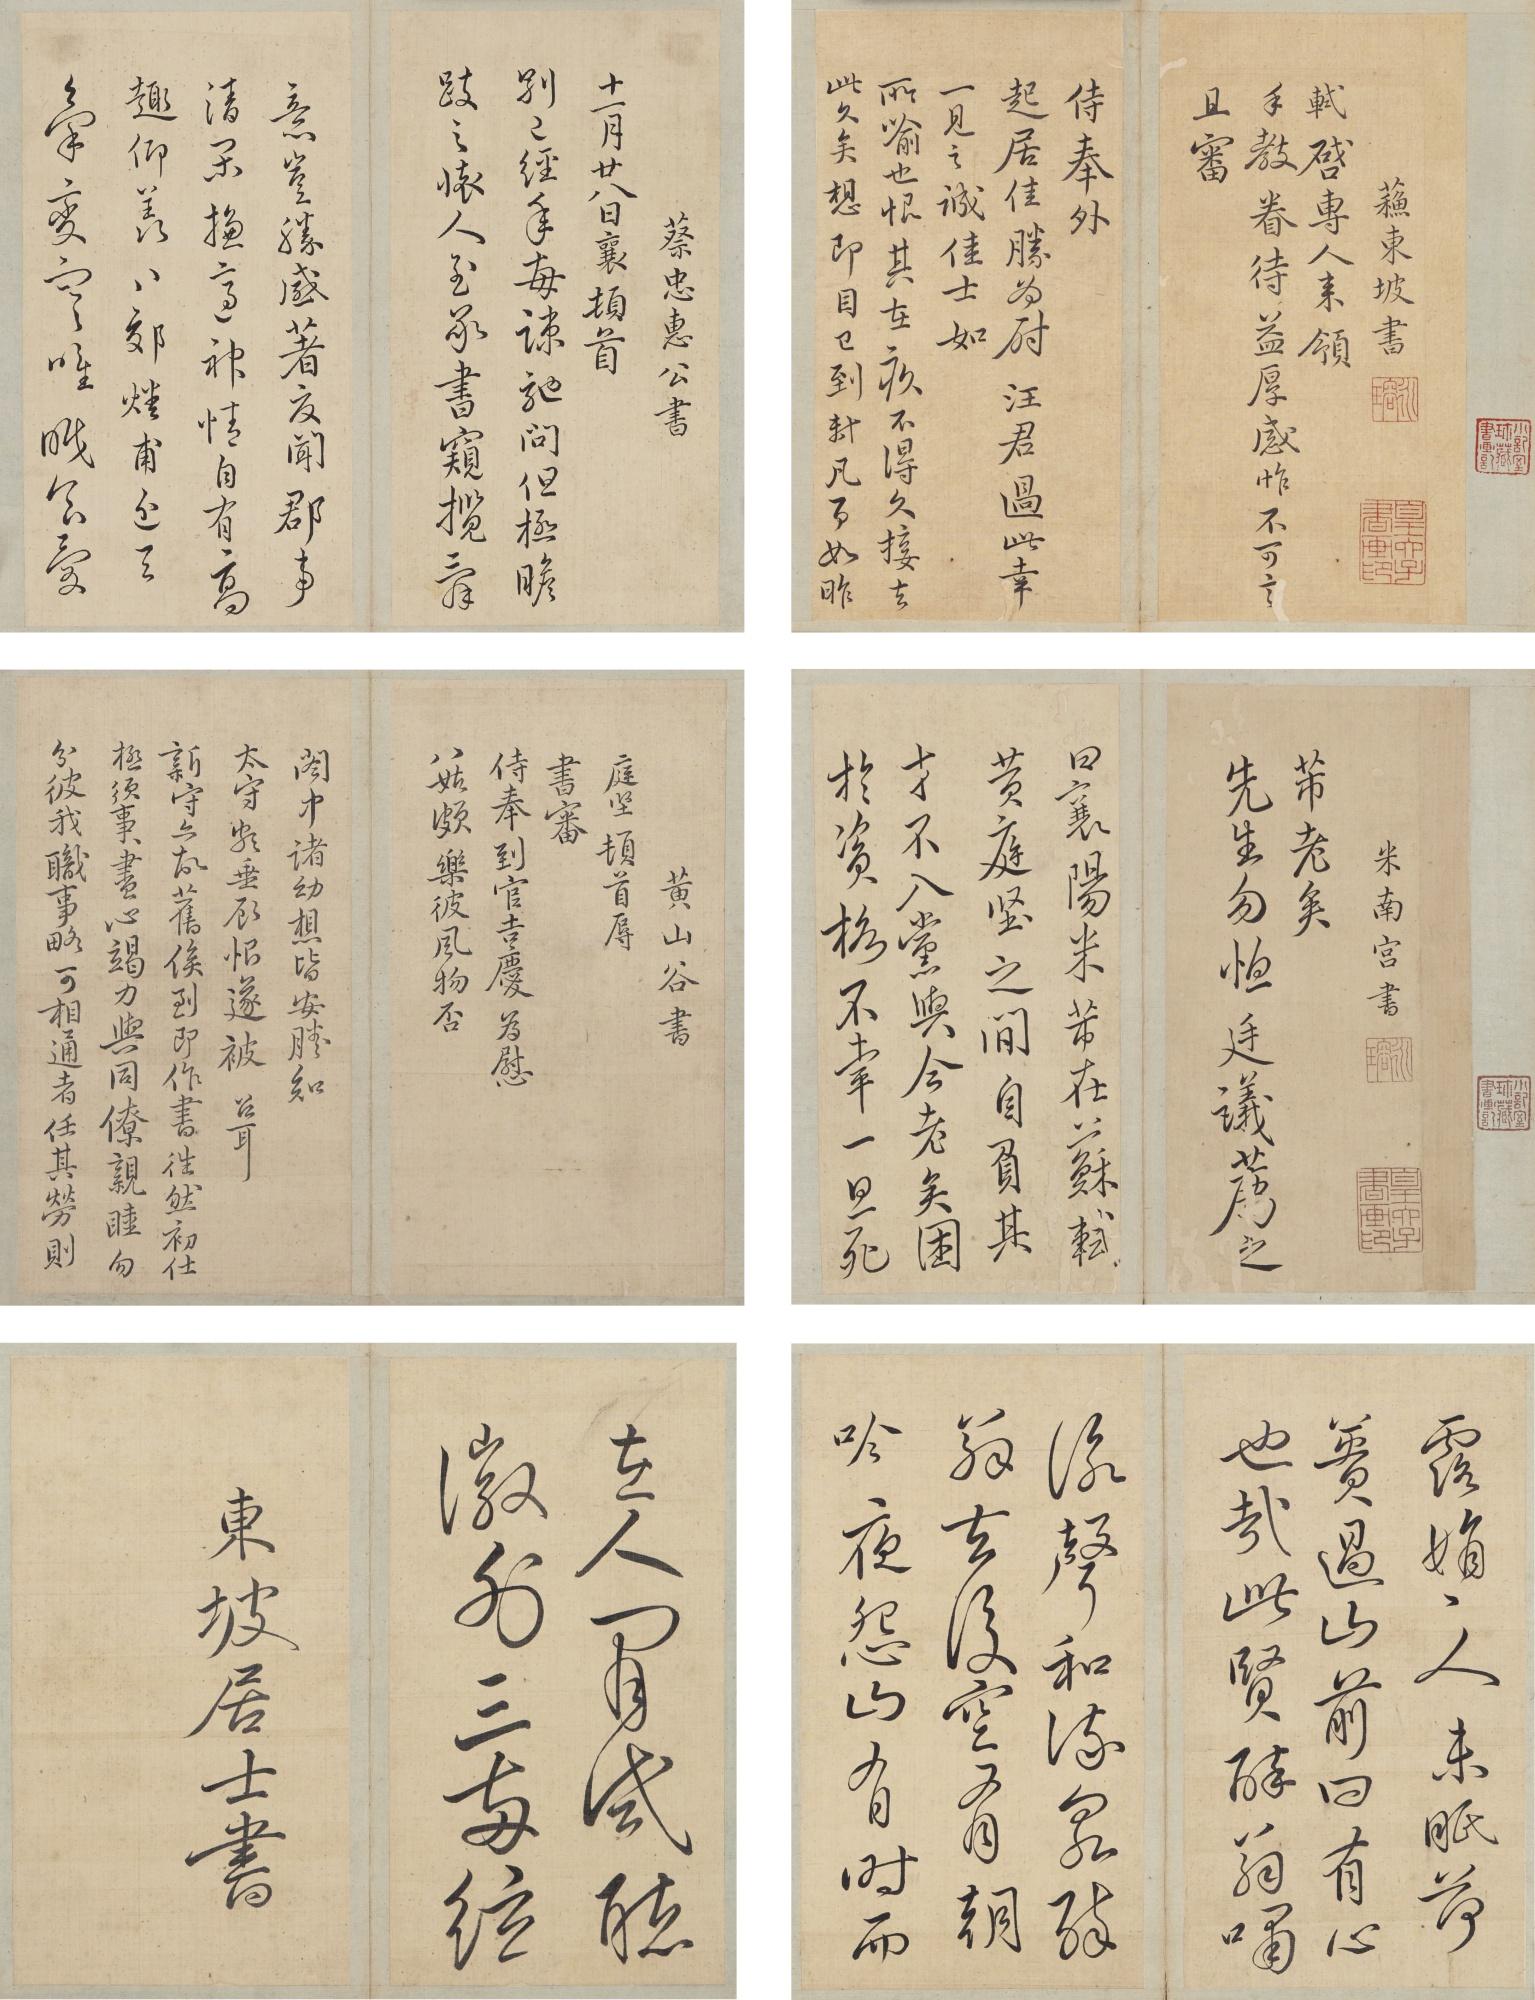 蘇東坡書
軾啓專人來領
手教眷待益厚感怍不可言
且審
侍奉外
起居佳勝為慰汪君過此幸
一見之誠佳士如
所喻也恨其在疚不得久接去
此久矣想即目已到軾凡百如昨
蔡忠惠公書
十一月廿八日襄頓首
別已經年每疎記問但極瞻
跂之懷人至承書窺揽三辭
意豈勝感著夜聞郡事
清閑擔適神情自有高
趣仰羨
氣變寧唯眠食愛
米南宮書
芾老矣
先生勿恤廷議薦之
曰襄陽米芾在蘇軾
黃庭堅之間自負其
才不入黨與今老矣困
於資格不幸一旦死
黃山谷書
庭堅頓首辱
書審
侍奉到官吉慶為慰
八姑頗樂彼風物否
閤中諸幼想皆安勝知
太守垂顧恨遂被召耳
新守亦故舊俟到即作書往然初仕
極須事盡心竭力與同僚親睦勿
分彼我職事略可相通者任其勞則
露娟娟人未眠荷
蕢過山前曰有心
也哉此賢醉翁嘯
詠聲和流泉醉
翁去後空有朝
吟夜怨山有時而
在人間試聽
徽外三兩絃
東坡居士書
皇六子書畫印